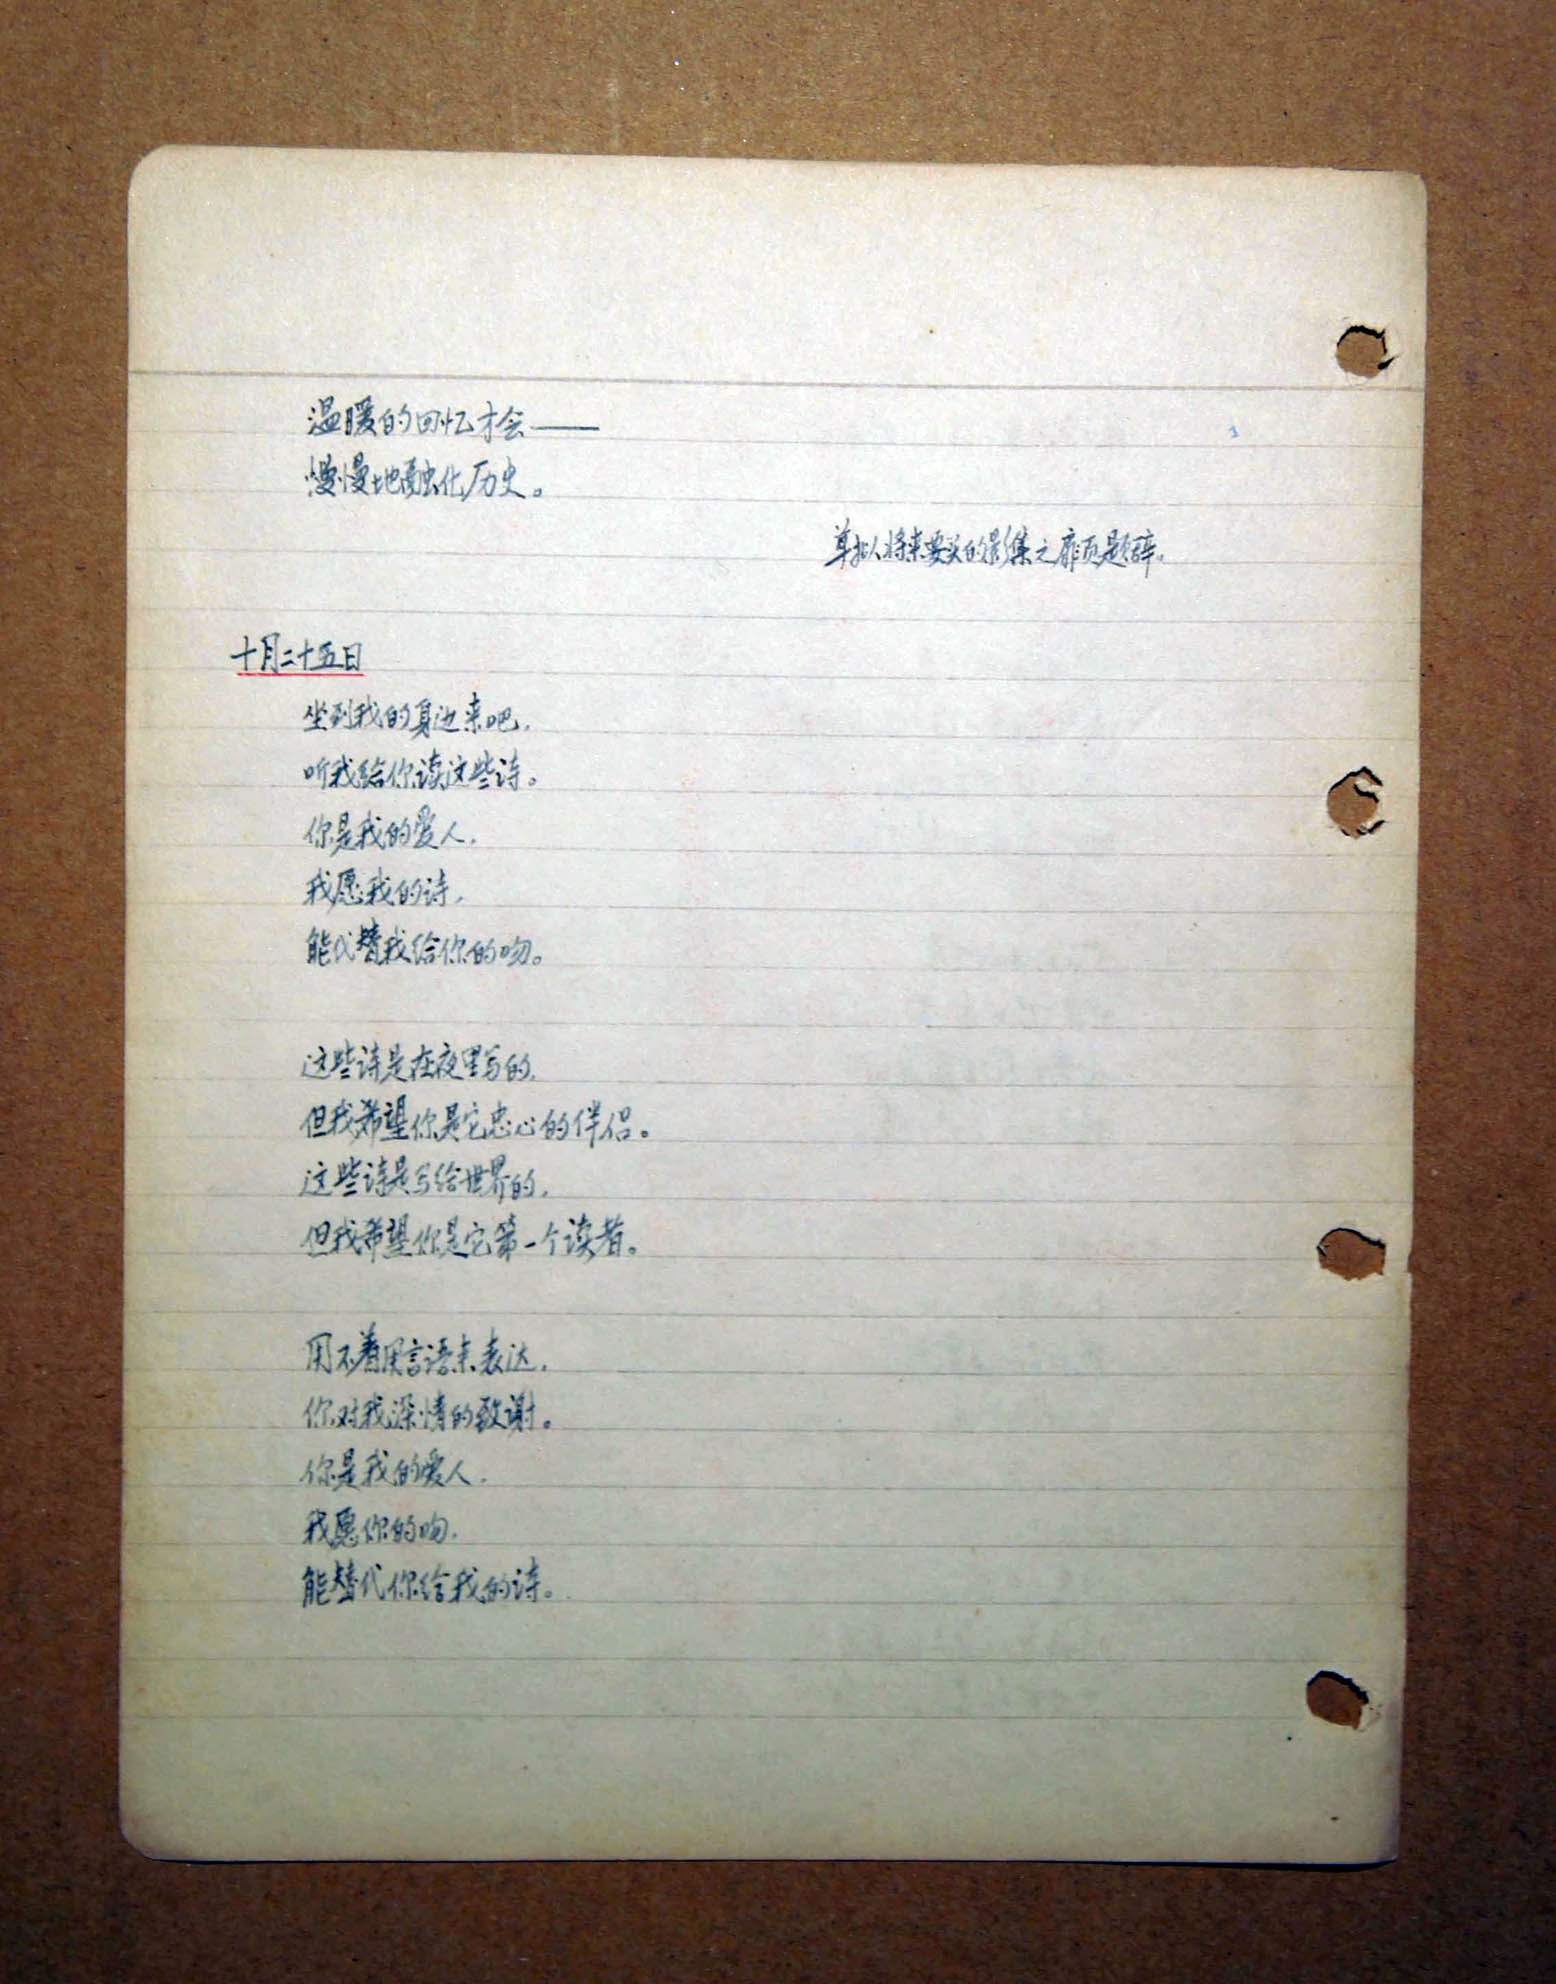 温暖的回忆才会——
慢慢地融化历史。
草拟将来要买的影集之扉页题辞。
十月二十五日
坐到我的身边来吧，
听我给你读这些诗。
你是我的爱人，
我愿我的诗，
能代替我给你的吻。
这些诗是在夜里写的，
但我希望你是它忠心的伴侣。
这些诗是写给世界的，
但我希望你是它第一个读者。
用不着用言语来表达，
你对我深情的致谢。
你是我的爱人，
我愿你的吻，
能替代你给我的诗。